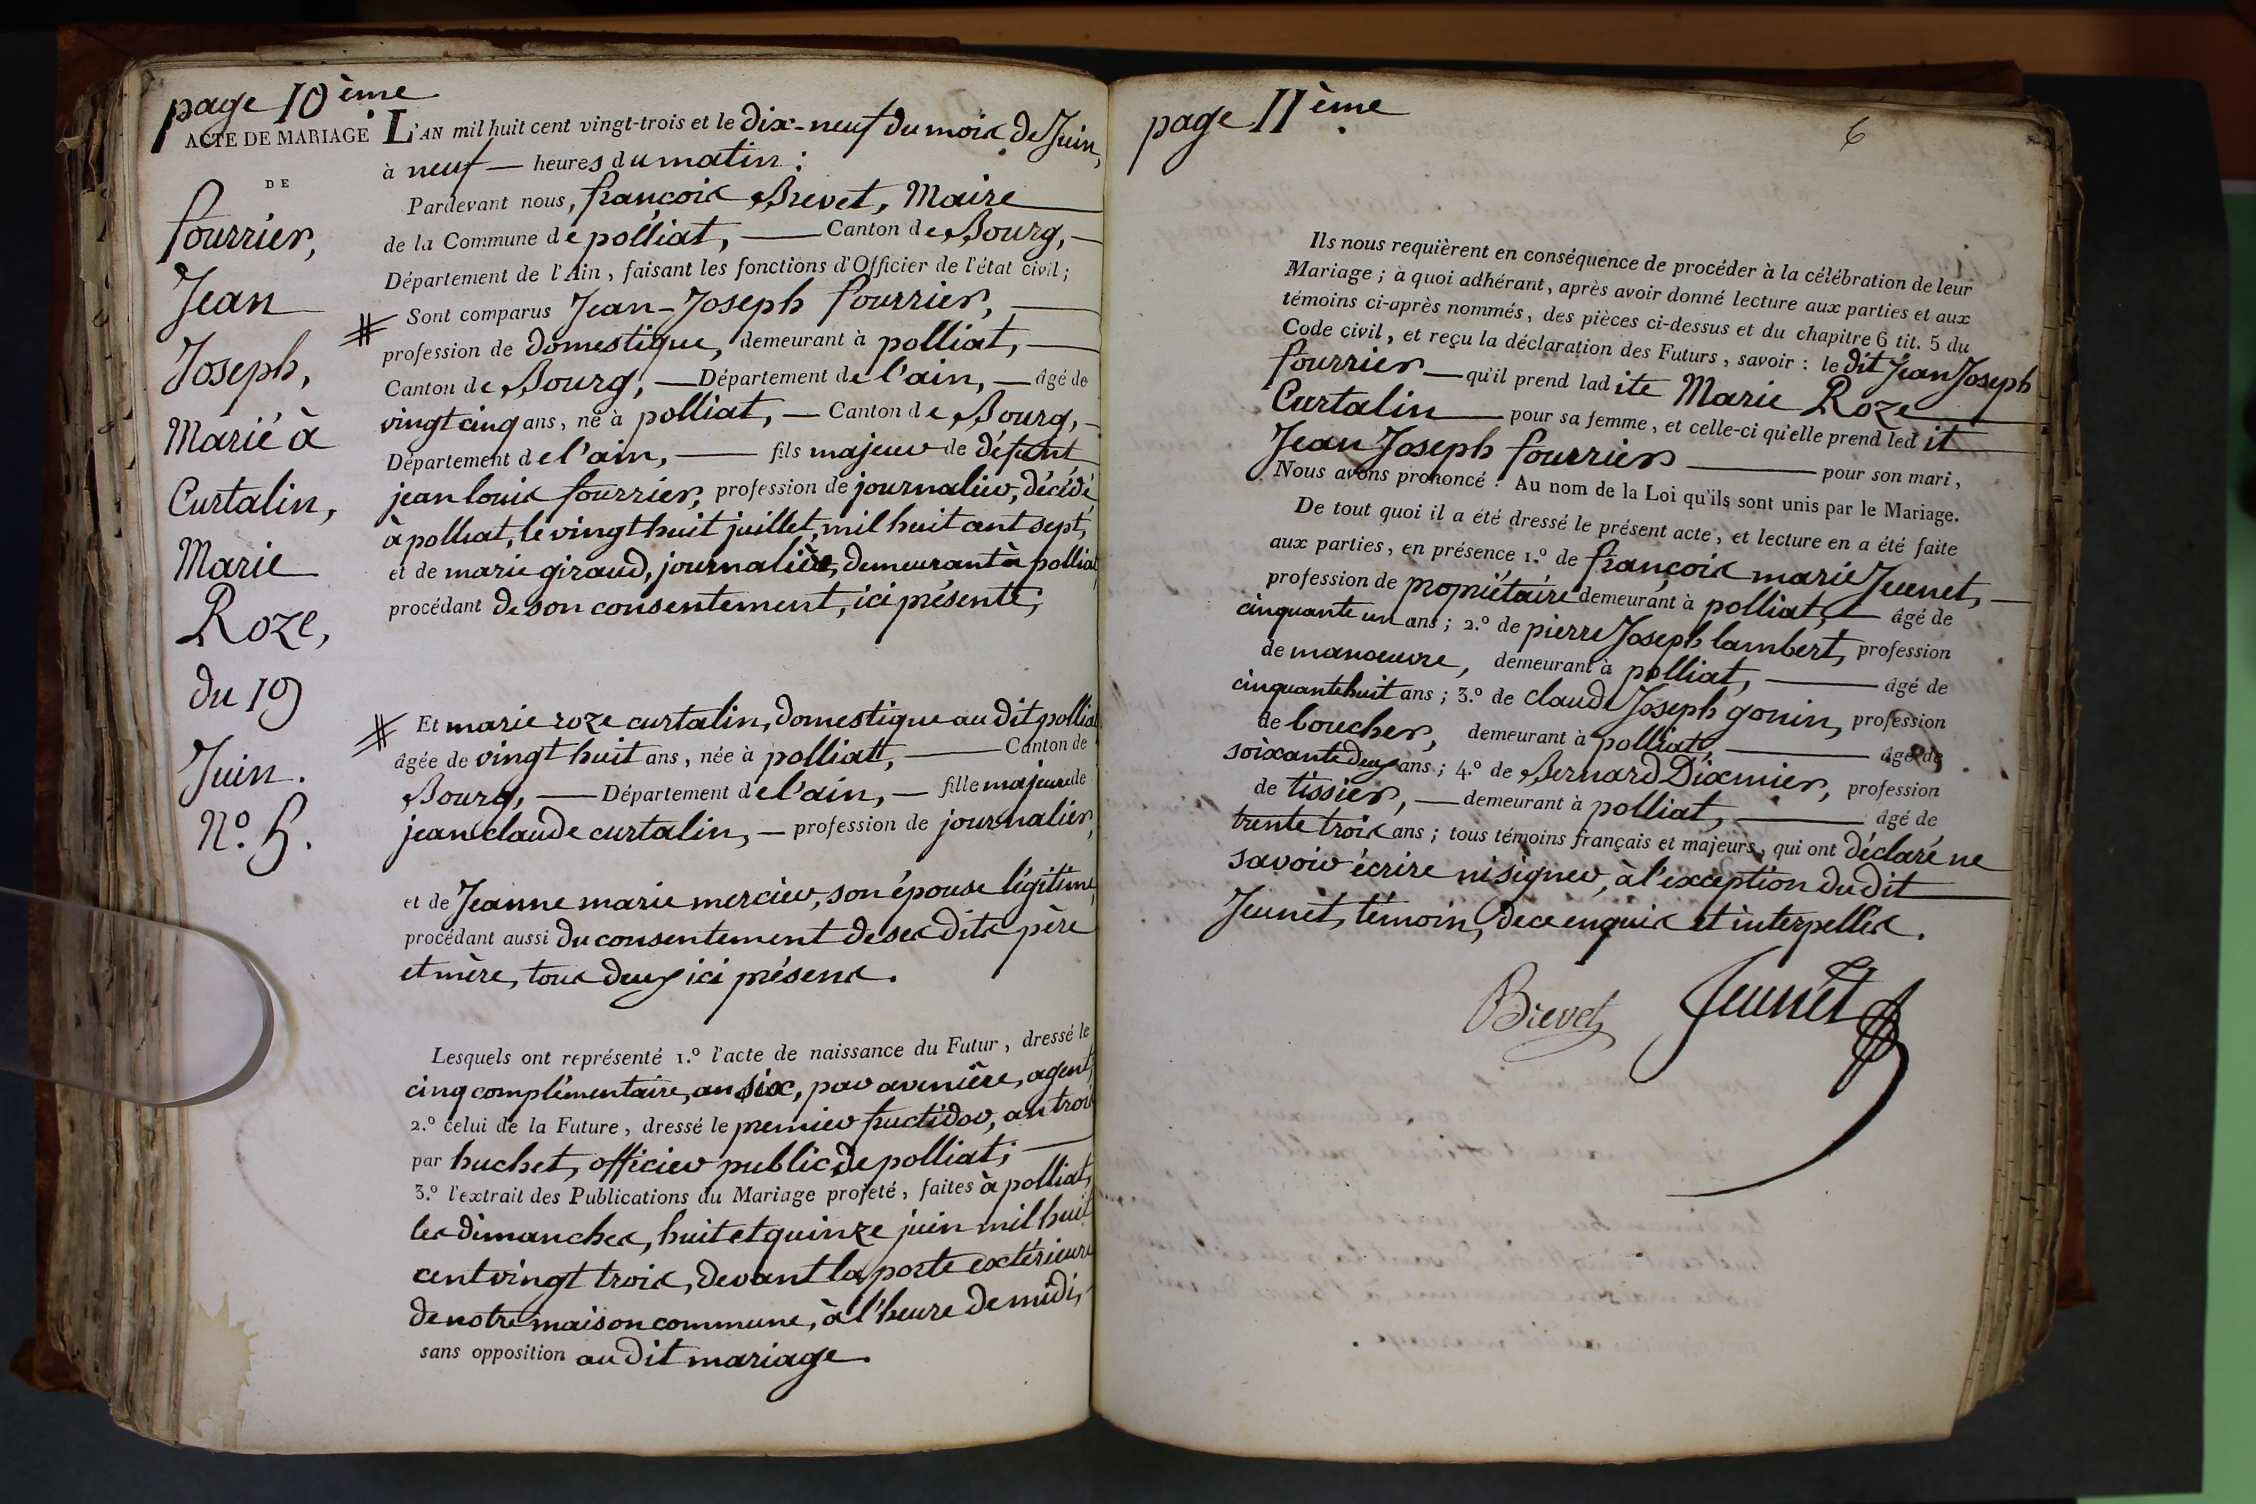 page 10ème
ACTE DE MARIAGE
DE
fourrier,
Jean
Joseph,
Marié à
Curtalin,
Marie
Roze,
du 19
Juin.
N.º 5.
L'AN mil huit cent vingt-trois et le dix-neuf du mois de Juin,
à neuf — heures du matin :
Pardevant nous, françois Brevet, Maire
de la Commune de polliat, — Canton de Bourg, —
Département de l'Ain, faisant les fonctions d'Officier de l'état civil ;
# Sont comparus Jean-Joseph fourrier, —
profession de domestique, demeurant à polliat, —
Canton de Bourg, — Département de l'ain, — âgé de
vingt cinq ans, né à polliat, — Canton de Bourg, —
Département de l'ain, — fils majeur de défunt
jean louis fourrier, profession de journalier, décédé
à polliat, le vingt huit juillet, mil huit cent sept,
et de marie giraud, journalière, demeurant à polliat,
procédant de son consentement, ici présente,
# Et marie roze curtalin, domestique au dit polliat
âgée de vingt huit ans, née à polliat, — Canton de
Bourg, — Département de l'ain, — fille majeure de
jean claude curtalin, — profession de journalier,
et de Jeanne marie mercier, son épouse légitime,
procédant aussi du consentement de ses dits père
et mère, tous deux ici présens.
Lesquels ont représenté 1.º l'acte de naissance du Futur, dressé le
cinq complémentaire, an six, par avenière, agent,
2.º celui de la Future, dressé le premier fructidor, an trois
par huchet, officier public de polliat, —
3.º l'extrait des Publications du Mariage projeté, faites à polliat,
les dimanches, huit et quinze juin mil huit
cent vingt trois, devant la porte extérieure
de notre maison commune, à l'heure de midi,
sans opposition au dit mariage.
page 11ème
6
Ils nous requièrent en conséquence de procéder à la célébration de leur
Mariage ; à quoi adhérant, après avoir donné lecture aux parties et aux
témoins ci-après nommés, des pièces ci-dessus et du chapitre 6 tit. 5 du
Code civil, et reçu la déclaration des Futurs, savoir : le dit Jean Joseph
fourrier — qu'il prend ladite Marie Roze
Curtalin — pour sa femme, et celle-ci qu'elle prend ledit
Jean Joseph fourrier — pour son mari,
Nous avons prononcé : Au nom de la Loi qu'ils sont unis par le Mariage.
De tout quoi il a été dressé le présent acte, et lecture en a été faite
aux parties, en présence 1.º de françois marie Jeunet, —
profession de propriétaire demeurant à polliat, — âgé de
cinquante un ans ; 2.º de pierre Joseph lambert, profession
de manœuvre, demeurant à polliat, — âgé de
cinquante huit ans ; 3.º de claude Joseph gonin, profession
de boucher, demeurant à polliat, — âgé de
soixante deux ans ; 4.º de Bernard Dixmier, profession
de tissier, — demeurant à polliat, — âgé de
trente trois ans ; tous témoins français et majeurs, qui ont déclaré ne
savoir écrire ni signer, à l'exception du dit
Jeunet, témoin, de ce enquis et interpellés.
Brevet Jeunet